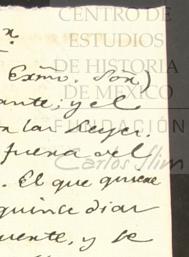 CENTRO DE
ESTUDIOS
DE HISTORIA
DE MÉXICO
FUNDACIÓN
Carlos Slim
Exmo. Son)
ante; y el
las Leyes.
fuera del
. El que quiere
quince dias
uente, y se